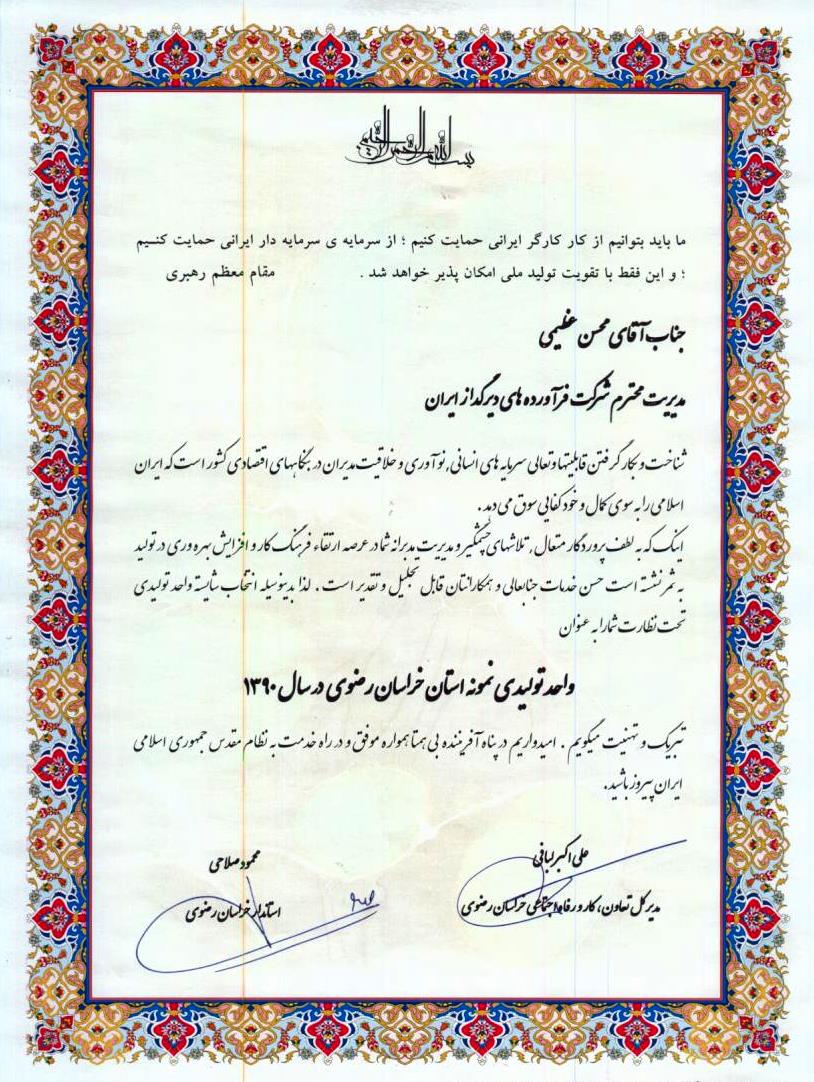 بسم الله الرحمن الرحیم
ما باید بتوانیم از کار کارگر ایرانی حمایت کنیم ؛ از سرمایه ی سرمایه دار ایرانی حمایت کنیم
؛ و این فقط با تقویت تولید ملی امکان پذیر خواهد شد . مقام معظم رهبری
جناب آقای محسن عظیمی
مدیریت محترم شرکت فرآورده های دیرگداز ایران
شناخت و بکار گرفتن قابلیتها و تعالی سرمایه های انسانی، نوآوری و خلاقیت مدیران در بنگاههای اقتصادی کشور است که ایران
اسلامی را به سوی کمال و خودکفایی سوق می دهد .
اینک که به لطف پروردگار متعال , تلاشهای چشمگیر و مدیریت مدبرانه شما در عرصه ارتقاء فرهنگ کار و افزایش بهره وری در تولید
به ثمر نشسته است حسن خدمات جنابعالی و همکارانتان قابل تجلیل و تقدیر است . لذا بدینوسیله انتخاب شایسته واحد تولیدی
تحت نظارت شما را به عنوان
واحد تولیدی نمونه استان خراسان رضوی در سال ۱۳۹۰
تبریک و تهنیت میگویم . امیدواریم در پناه آفریننده بی همتا همواره موفق و در راه خدمت به نظام مقدس جمهوری اسلامی
ایران پیروز باشید.
علی اکبر لبافی
مدیرکل تعاون، کار و رفاه اجتماعی خراسان رضوی
محمود صلاحی
استاندار خراسان رضوی